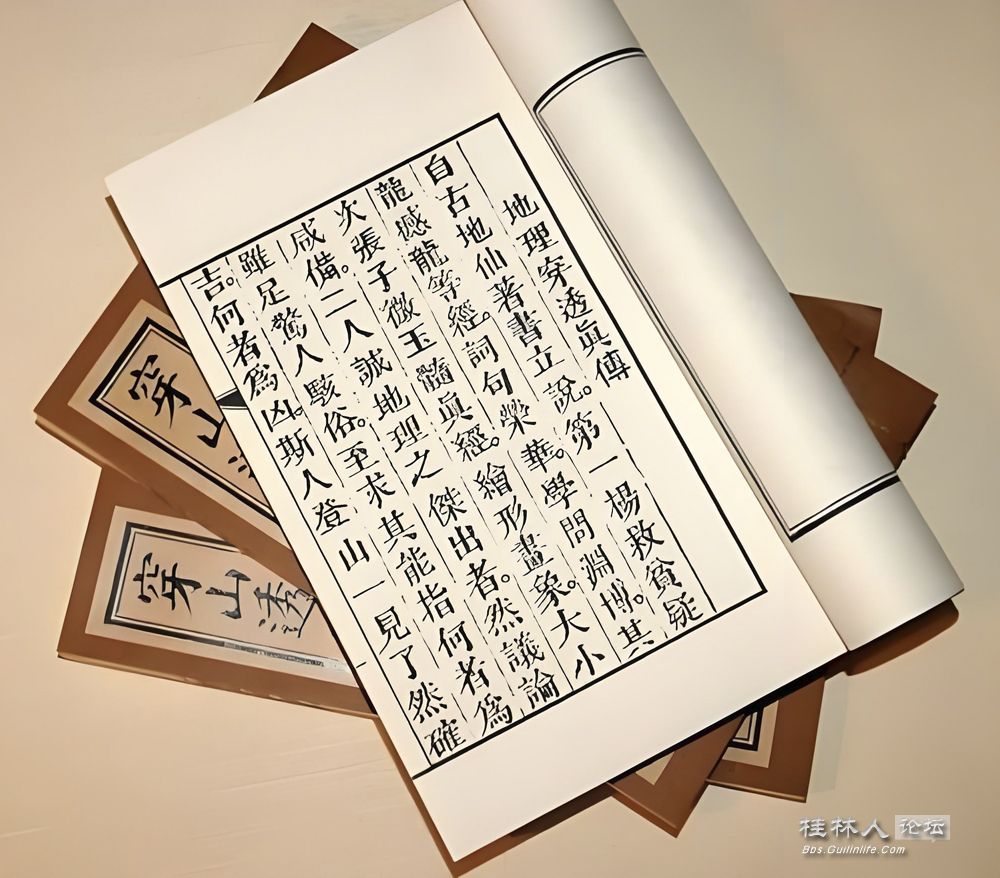 地理穿透眞傳
自古地仙著書立說。第一楊救貧疑
龍撼龍等經。詞句榮華。學問淵博。其
次張子微玉髓眞經。繪形畫象。大小
咸備。二人誠地理之傑出者。然議論
雖足驚人駭俗。至求其能指何者爲
吉。何者爲凶。斯人登山一見了然確
穿山
穿山透
桂林人论坛
Bbs.Guilinlife.Com